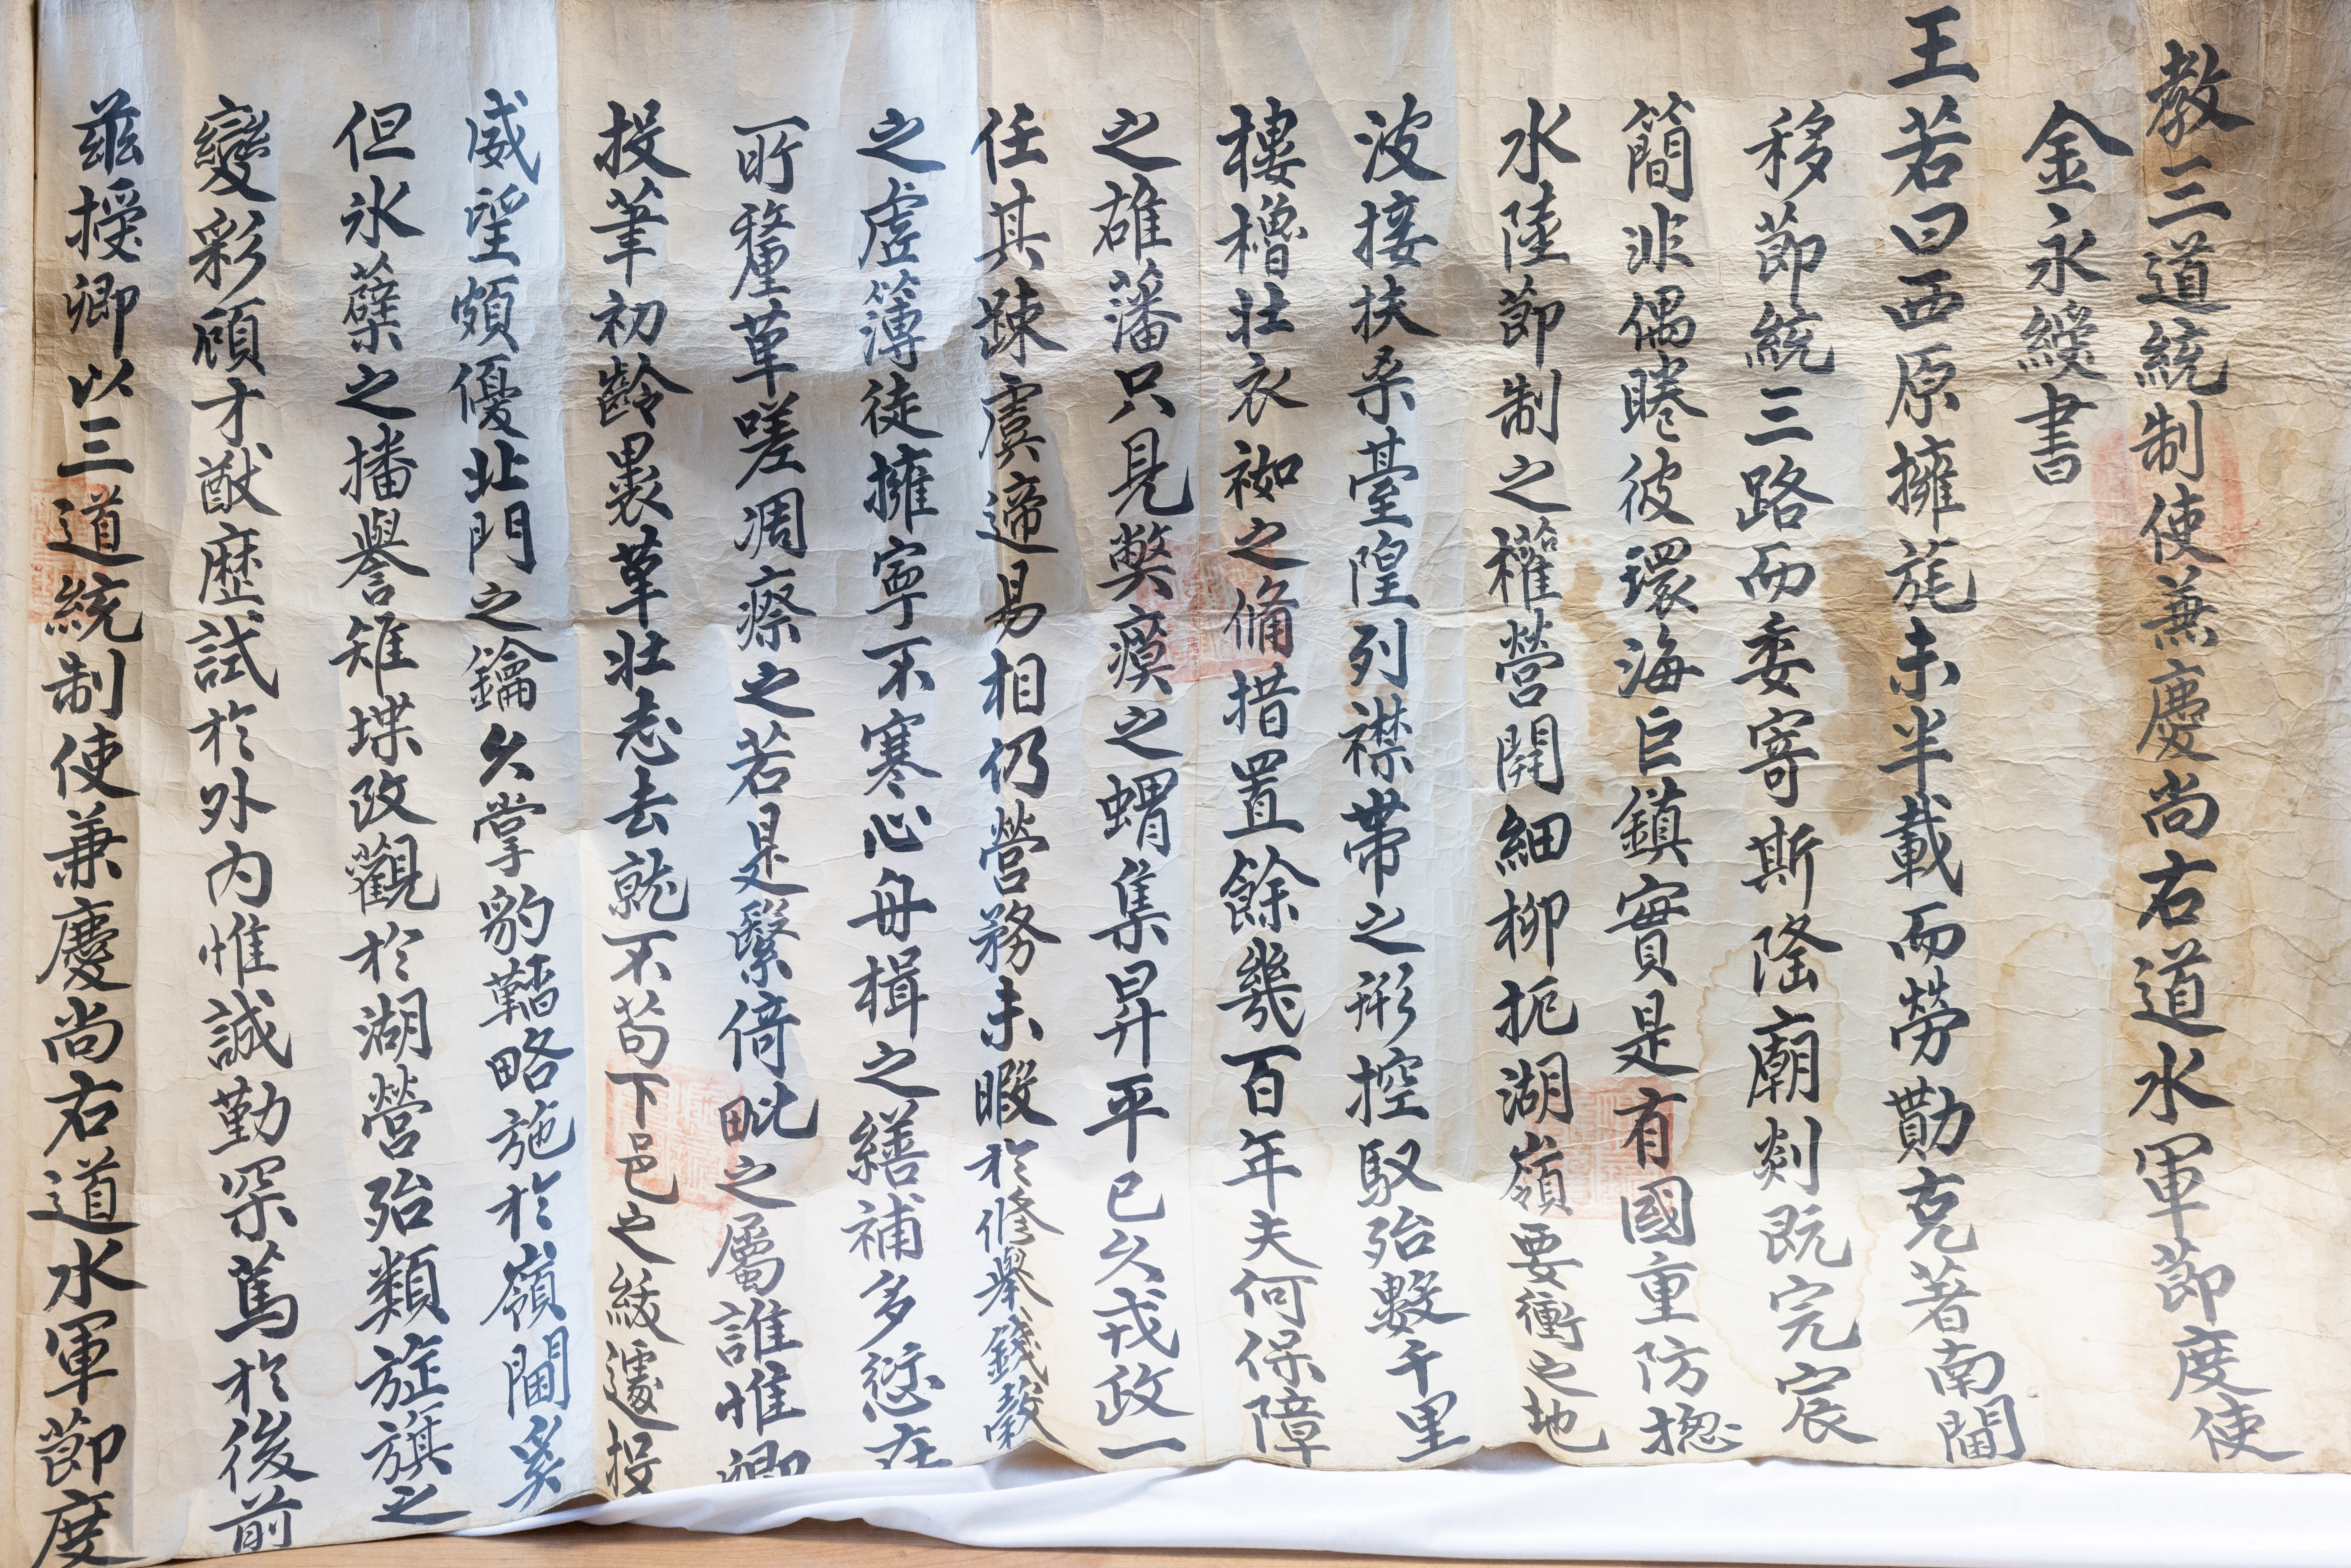 教三道統制使兼慶尚右道水軍節度使
金永綬書
王若曰西原擁旄未半載而勞勩克著南閫
移節統三路而委寄斯隆廟剡既完宸
簡非偶睠彼環海巨鎮實是有國重防揔
水陸節制之權營開細柳扼湖嶺要衝之地
波接扶桑臺隍列襟帶之形控馭殆數千里
樓櫓壯衣袽之備措置餘幾百年夫何保障
之雄藩只見弊瘼之蝟集昇平已久戎政一
任其踈虞遞易相仍營務未暇於修舉錢穀
之虛簿徒擁寧不寒心舟楫之繕補多愆在
所釐革嗟凋瘵之若是繄倚毗之屬誰惟卿
投筆初齡裹革壯志去就不苟下邑之綏遽投
威望頗優北門之鑰久掌豹韜略施於嶺閫奚
但氷蘗之播譽雉堞改觀於湖營殆類旌旗之
變彩顧才猷歷試於外內惟誠勤罙篤於後前
茲授卿以三道統制使兼慶尚右道水軍節度